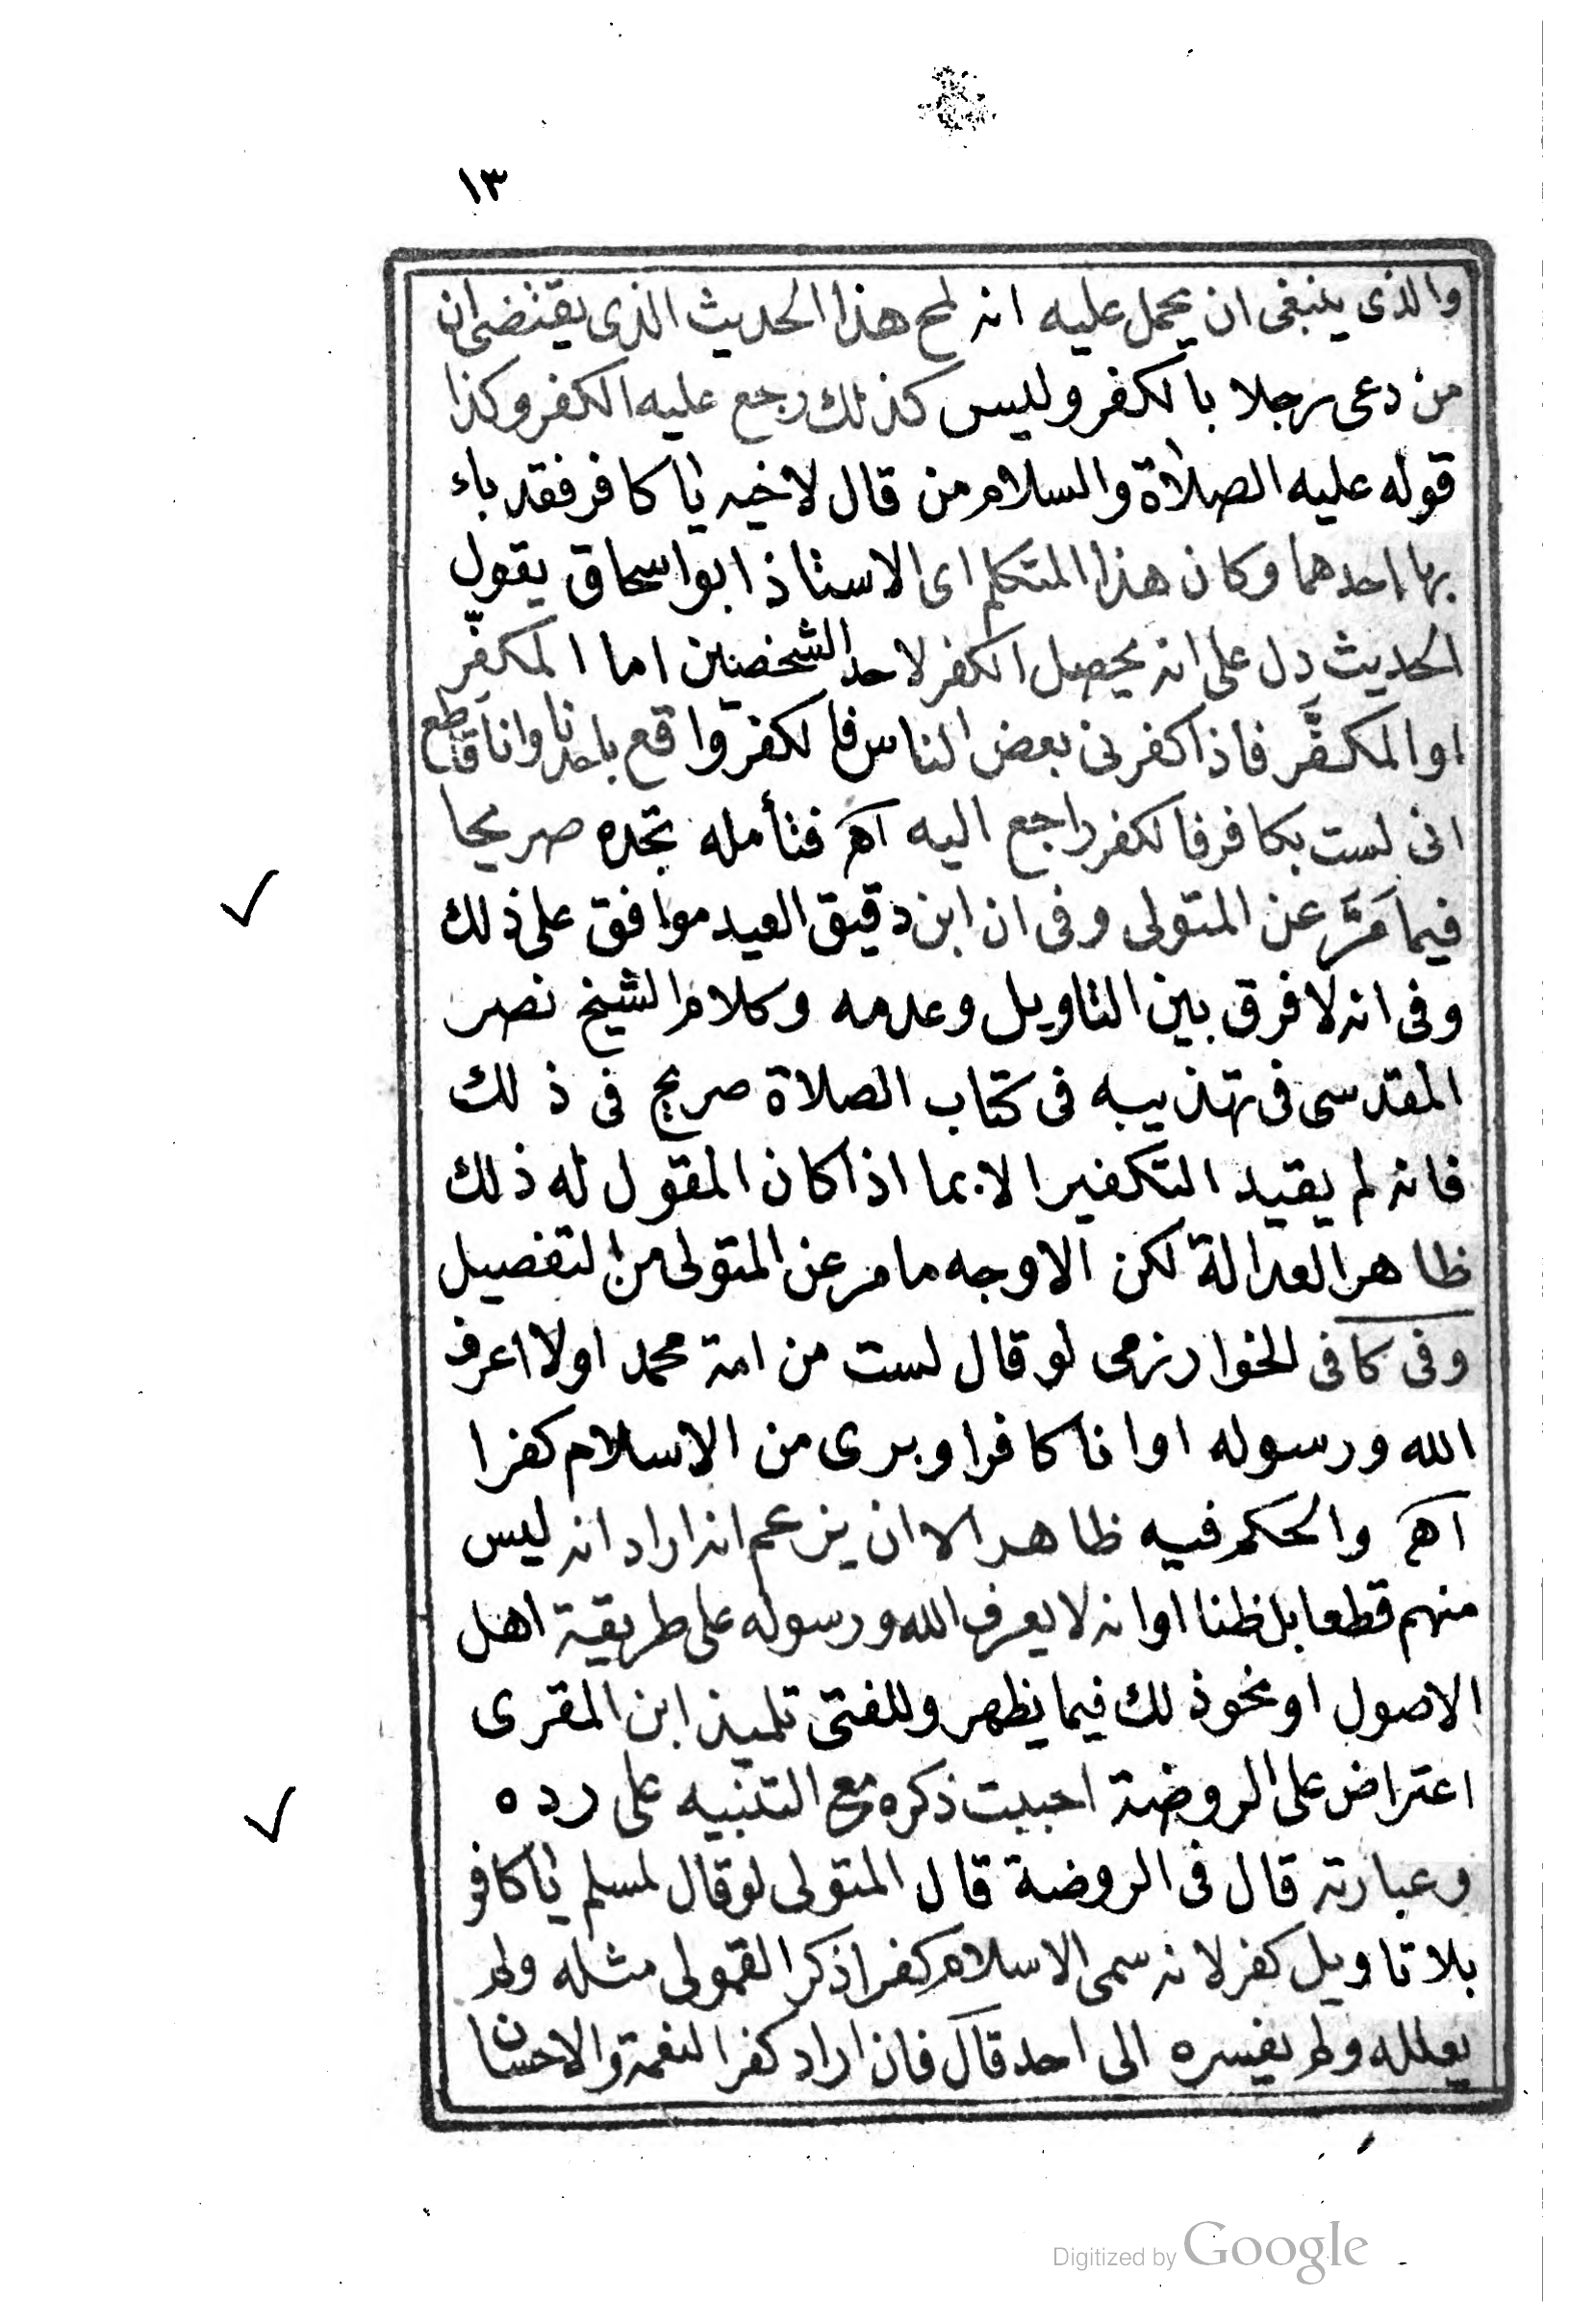 ١٣
والذى ينبغى ان يحمل عليه انه لمح هذا الحديث الذى يقتضى ان
من دعى رجلا بالكفر وليس كذلك رجع عليه الكفر وكذا
قوله عليه الصلاة والسلام من قال لاخيه يا كافر فقد باء
بها احدهما وكان هذا المتكلم اى الاستاذ ابو اسحاق يقول
الحديث دل على انه يحصل الكفر لاحد الشخصين اما المكفِّر
او المكفَّر فاذا كفرنى بعض الناس فالكفر واقع باحدنا وانا قاطع
انى لست بكافر فالكفر راجع اليه اهـ فتأمله تجده صريحا
فيما مَرَّ عن المتولى وفى ان ابن دقيق العيد موافق على ذلك
وفى انه لا فرق بين التاويل وعدمه وكلام الشيخ نصر
المقدسى فى تهذيبه فى كتاب الصلاة صريح فى ذلك
فانه لم يقيد التكفير الا بما اذا كان المقول له ذلك
ظاهر العدالة لكن الاوجه ما مر عن المتولى من التفصيل
وفى كافى الخوارزمى لو قال لست من امة محمد او لا اعرف
الله ورسوله او انا كافر او برى من الاسلام كفرا
اهـ والحكم فيه ظاهر الا ان يزعم انه اراد انه ليس
منهم قطعا بل ظنا او انه لا يعرف الله ورسوله على طريقة اهل
الاصول او نحو ذلك فيما يظهر وللفتى تلميذ ابن المقرى
اعتراض على الروضة احببت ذكره مع التنبيه على رده
وعبارته قال فى الروضة قال المتولى لو قال لمسلم يا كافر
بلا تاويل كفر لانه سمى الاسلام كفرا ذكر القمولى مثله ولم
يعلله ولم يفسره الى احد قال فان اراد كفر النعمة والاحسان
Digitized by Google